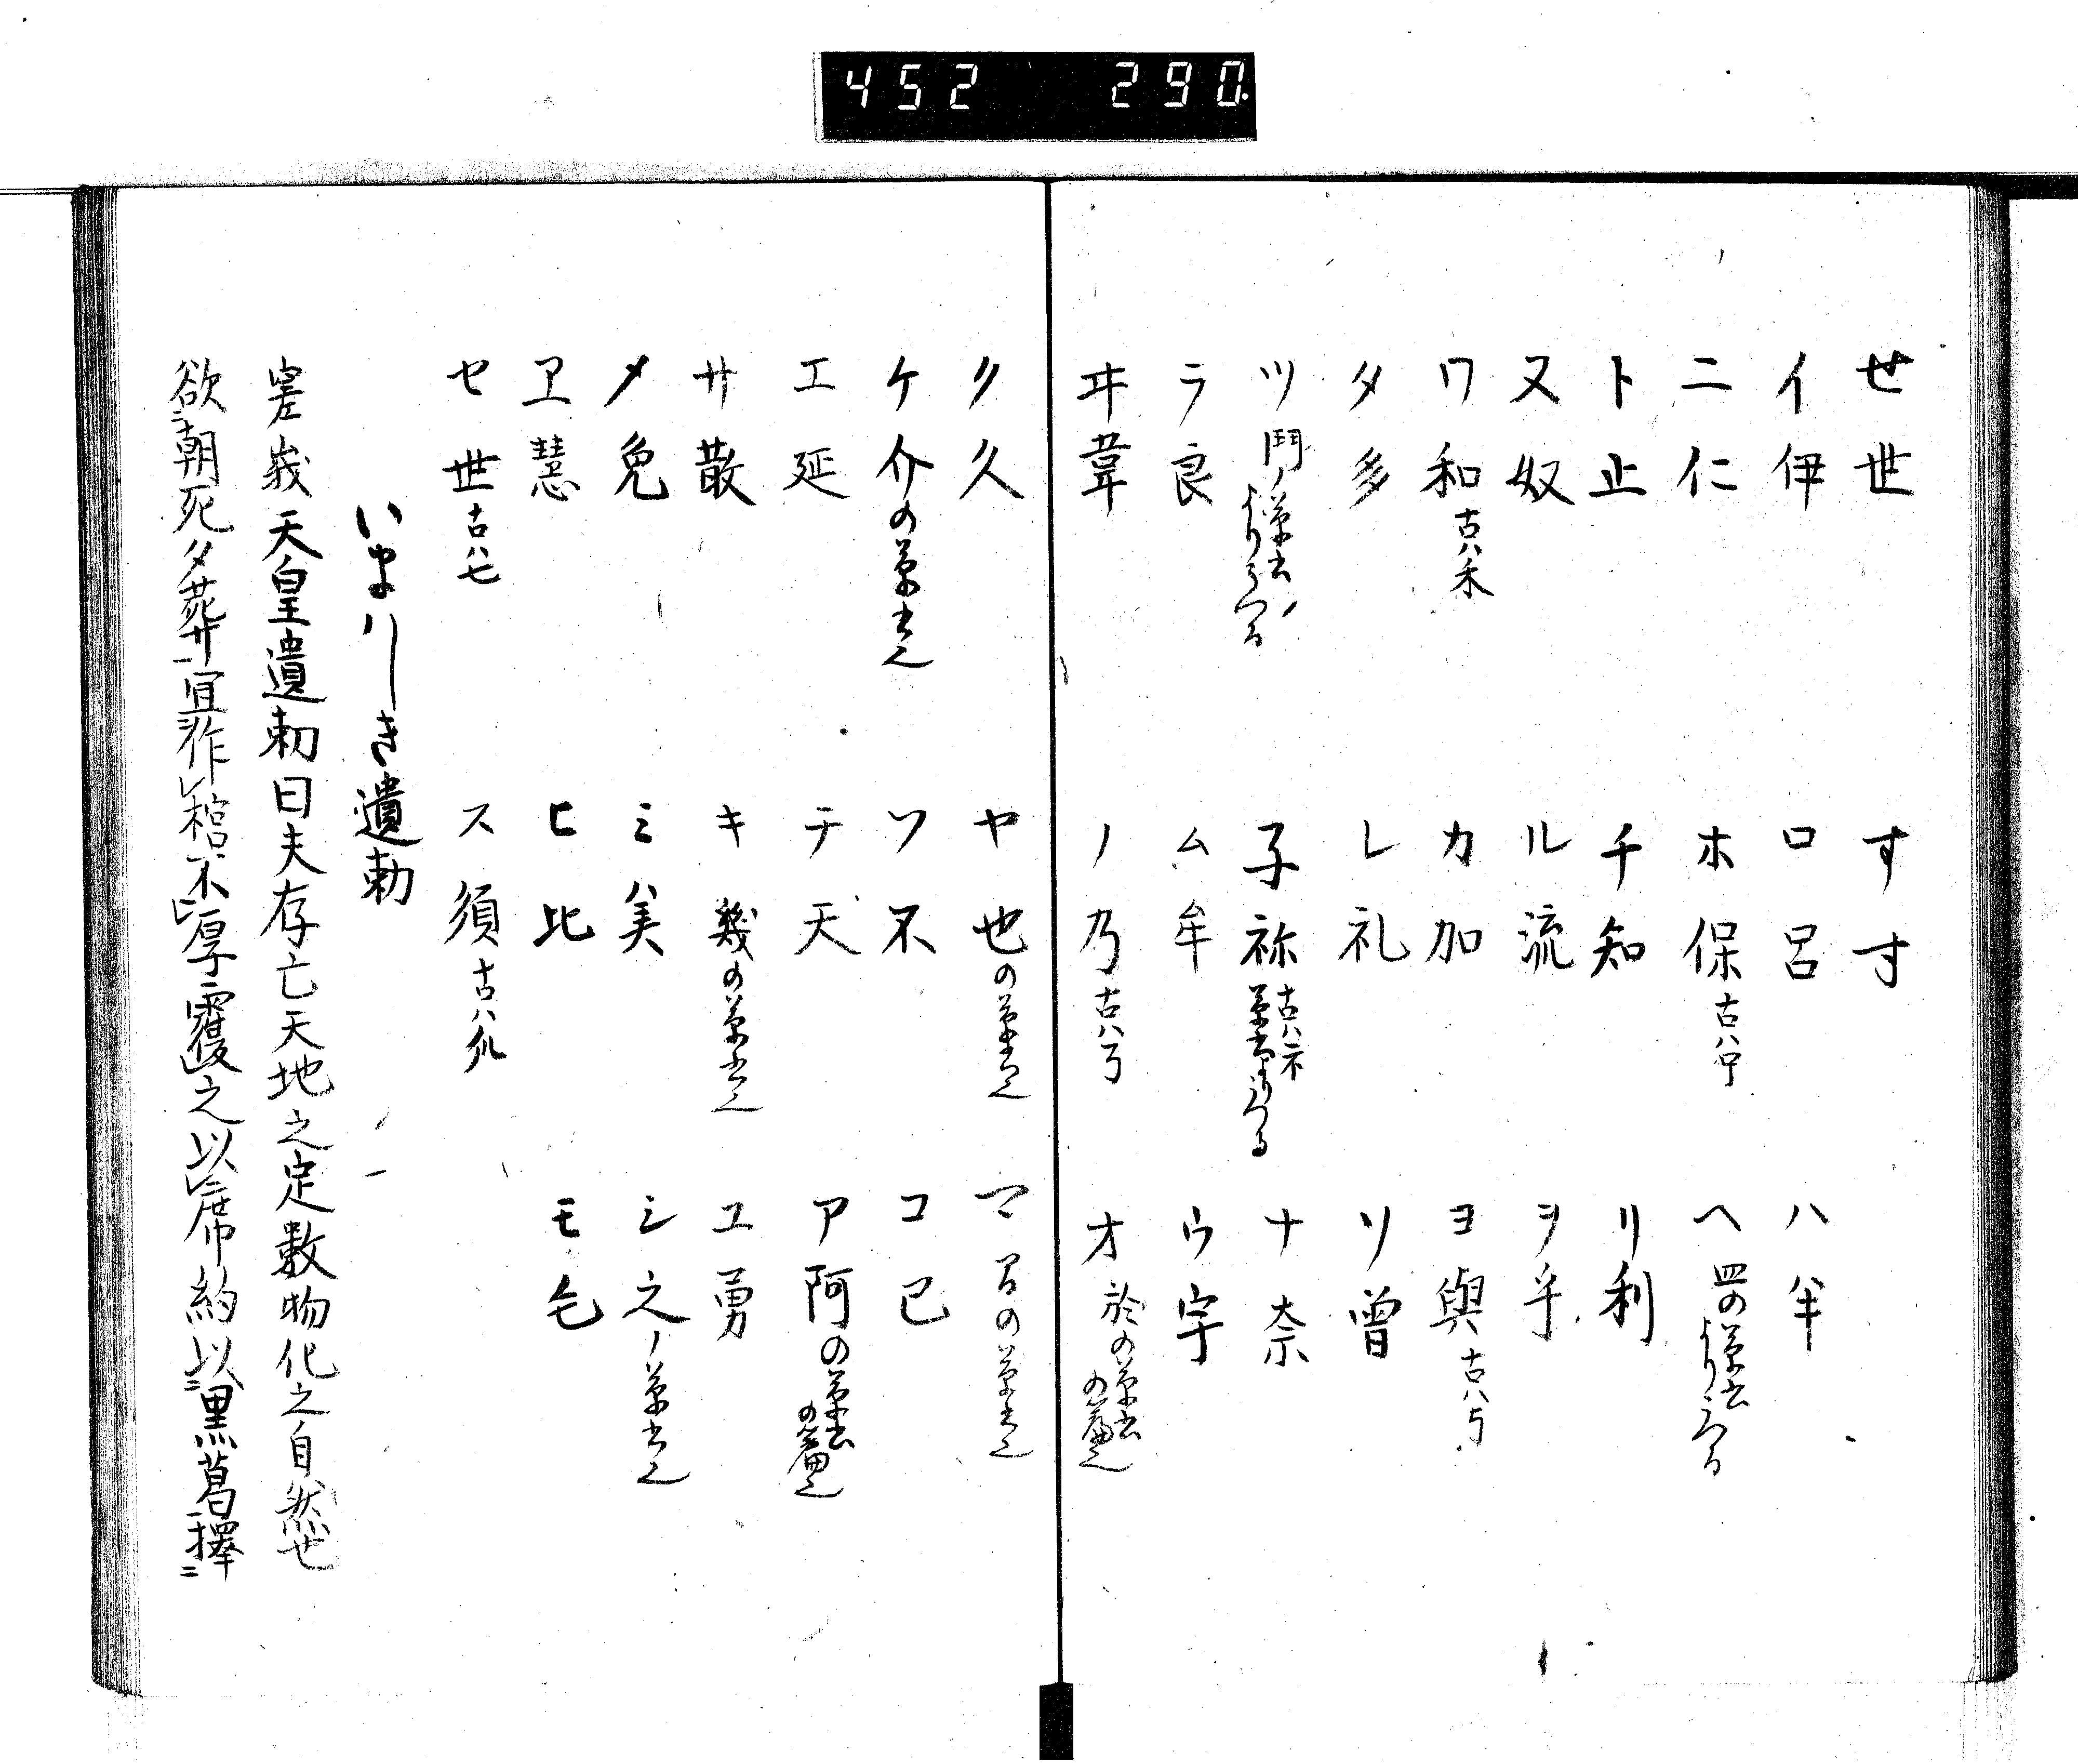 452 290
せ世 す寸
イ伊 ロ呂 ハ半
ニ仁 ホ保古ハ ヘ四の草書よりうつる
ト止 チ知 リ利
ヌ奴 ル流 ヲ乎
ワ和古ハ禾 カ加 ヨ與古ハ与
タ多 レ礼 ソ曽
ツ門ノ草書ノよりうつる 子祢古ハ ナ奈
ラ良 ム牟 ウ宇
ヰ韋 ノ乃古ハ オ於の草書の扁也
ク久 ヤ也の草書也 マ の草書也
ケ介の草書也 フ不 コ己
エ延 テ天 ア阿の草書の扁也
サ散 キ幾の草書也 ユ勇
メ免 ミ美 シ之ノ草書也
ヱ慧 ヒ比 モ毛
セ世古ハ七 ス須古ハ
いまハしき遺勅
嵯峨天皇遺勅曰夫存亡天地之定数物化之自然也
欲朝死夕葬サ宜作棺不厚覆之以席約以黒葛擇